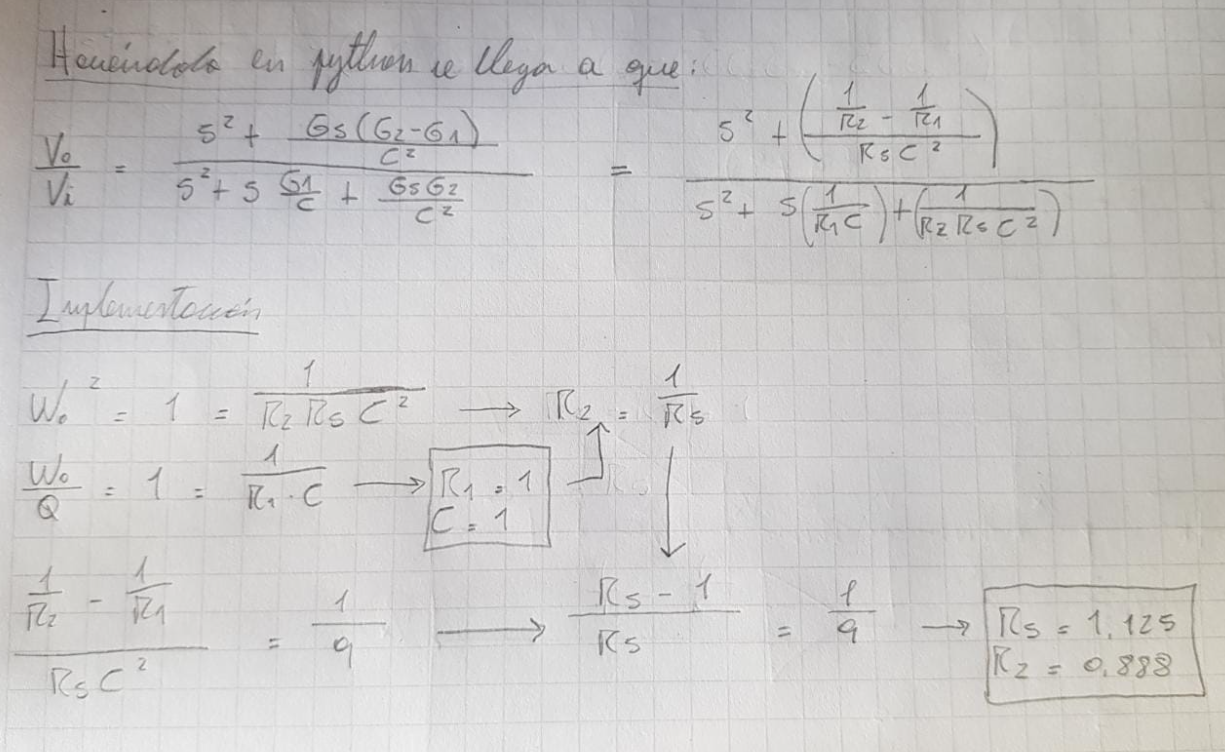 Haciéndolo en python se llega a que:
Vo/Vi = (s² + Gs(G2-G1)/C²) / (s² + s G1/C + GsG2/C²) = (s² + ((1/R2 - 1/R1)/(Rs C²))) / (s² + s(1/(R1 C)) + (1/(R2 Rs C²)))
Implementación
Wo² = 1 = 1/(R2 Rs C²) → R2 = 1/Rs
Wo/Q = 1 = 1/(R1 · C) → R1 = 1
C = 1
(1/R2 - 1/R1)/(Rs C²) = 1/9 → (Rs - 1)/Rs = 1/9 → Rs = 1,125
R2 = 0,888